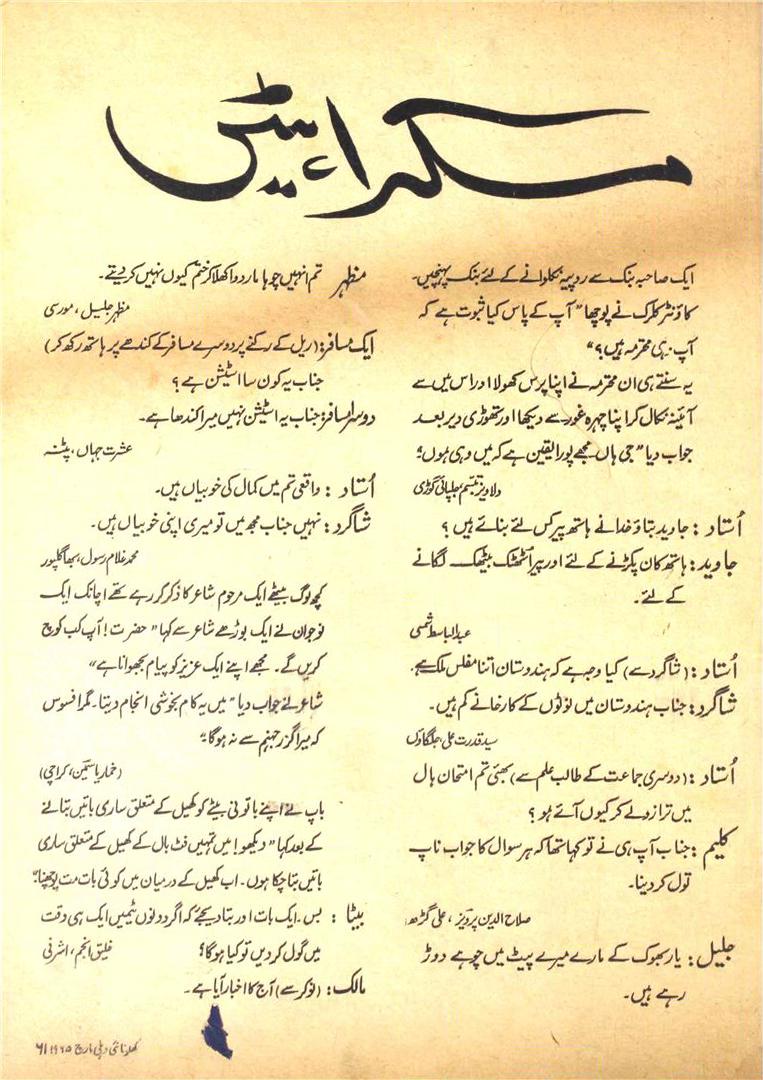 مسکراہٹیں
ایک صاحبہ بنک سے روپیہ نکلوانے کے لئے بنک پہنچیں۔
کاؤنٹر کلرک نے پوچھا ”آپ کے پاس کیا ثبوت ہے کہ
آپ ہی محترمہ ہیں؟“
یہ سنتے ہی ان محترمہ نے اپنا پرس کھولا اور اس میں سے
آئینہ نکال کر اپنا چہرہ غور سے دیکھا اور تھوڑی دیر بعد
جواب دیا ”جی ہاں۔ مجھے پورا یقین ہے کہ میں وہی ہوں؟
دلاویز تبسم، جلپائی گوڑی
اُستاد : جاوید بتاؤ خدا نے ہاتھ پیر کس لئے بنائے ہیں ؟
جاوید : ہاتھ کان پکڑنے کے لئے اور پیر اُٹھک بیٹھک لگانے
کے لئے۔
عبدالباسط شمسی
اُستاد : (شاگرد سے) کیا وجہ ہے کہ ہندوستان اتنا مفلس ملک ہے۔
شاگرد : جناب ہندوستان میں نوٹوں کے کارخانے کم ہیں۔
سید قدرت علی، جلگاؤں
اُستاد : (دوسری جماعت کے طالب علم سے) بھئی تم امتحان ہال
میں ترازو لے کر کیوں آئے ہو ؟
کلیم : جناب آپ ہی نے تو کہا تھا کہ ہر سوال کا جواب ناپ
تول کر دینا۔
صلاح الدین پرویز، علی گڑھ
جلیل : یار بھوک کے مارے میرے پیٹ میں چوہے دوڑ
رہے ہیں۔
مظہر تم انہیں چوہا مار دوا کھلا کر ختم کیوں نہیں کر دیتے۔
مظہر جلیل، مورسی
ایک مسافر : (ریل کے رکنے پر دوسرے مسافر کے کندھے پر ہاتھ رکھ کر)
جناب یہ کون سا اسٹیشن ہے ؟
دوسرا مسافر : جناب یہ اسٹیشن نہیں میرا کندھا ہے۔
عشرت جہاں، پٹنہ
اُستاد : واقعی تم میں کمال کی خوبیاں ہیں۔
شاگرد : نہیں جناب مجھ میں تو میری اپنی خوبیاں ہیں۔
محمد غلام رسول، بھاگلپور
کچھ لوگ بیٹھے ایک مرحوم شاعر کا ذکر کر رہے تھے اچانک ایک
نوجوان نے ایک بوڑھے شاعر سے کہا ”حضرت! آپ کب کوچ
کریں گے۔ مجھے اپنے ایک عزیز کو پیام بجھوانا ہے“
شاعر نے جواب دیا ”میں یہ کام بخوشی انجام دیتا۔ مگر افسوس
کہ میرا گزر جہنم سے نہ ہوگا“
(خمار یاسمین، کراچی)
باپ نے اپنے باتونی بیٹے کو کھیل کے متعلق ساری باتیں بتانے
کے بعد کہا ”دیکھو! میں تمہیں فٹ بال کے کھیل کے متعلق ساری
باتیں بتا چکا ہوں۔ اب کھیل کے درمیان میں کوئی بات مت پوچھنا“
بیٹا : بس۔ ایک بات اور بتا دیجئے کہ اگر دونوں ٹیمیں ایک ہی وقت
میں گول کر دیں تو کیا ہوگا؟ خلیق انجم، اشرفی
مالک : (نوکر سے) آج کا اخبار آیا ہے۔
کھلونا نئی دہلی مارچ ۱۹۶۵ء ۶۱